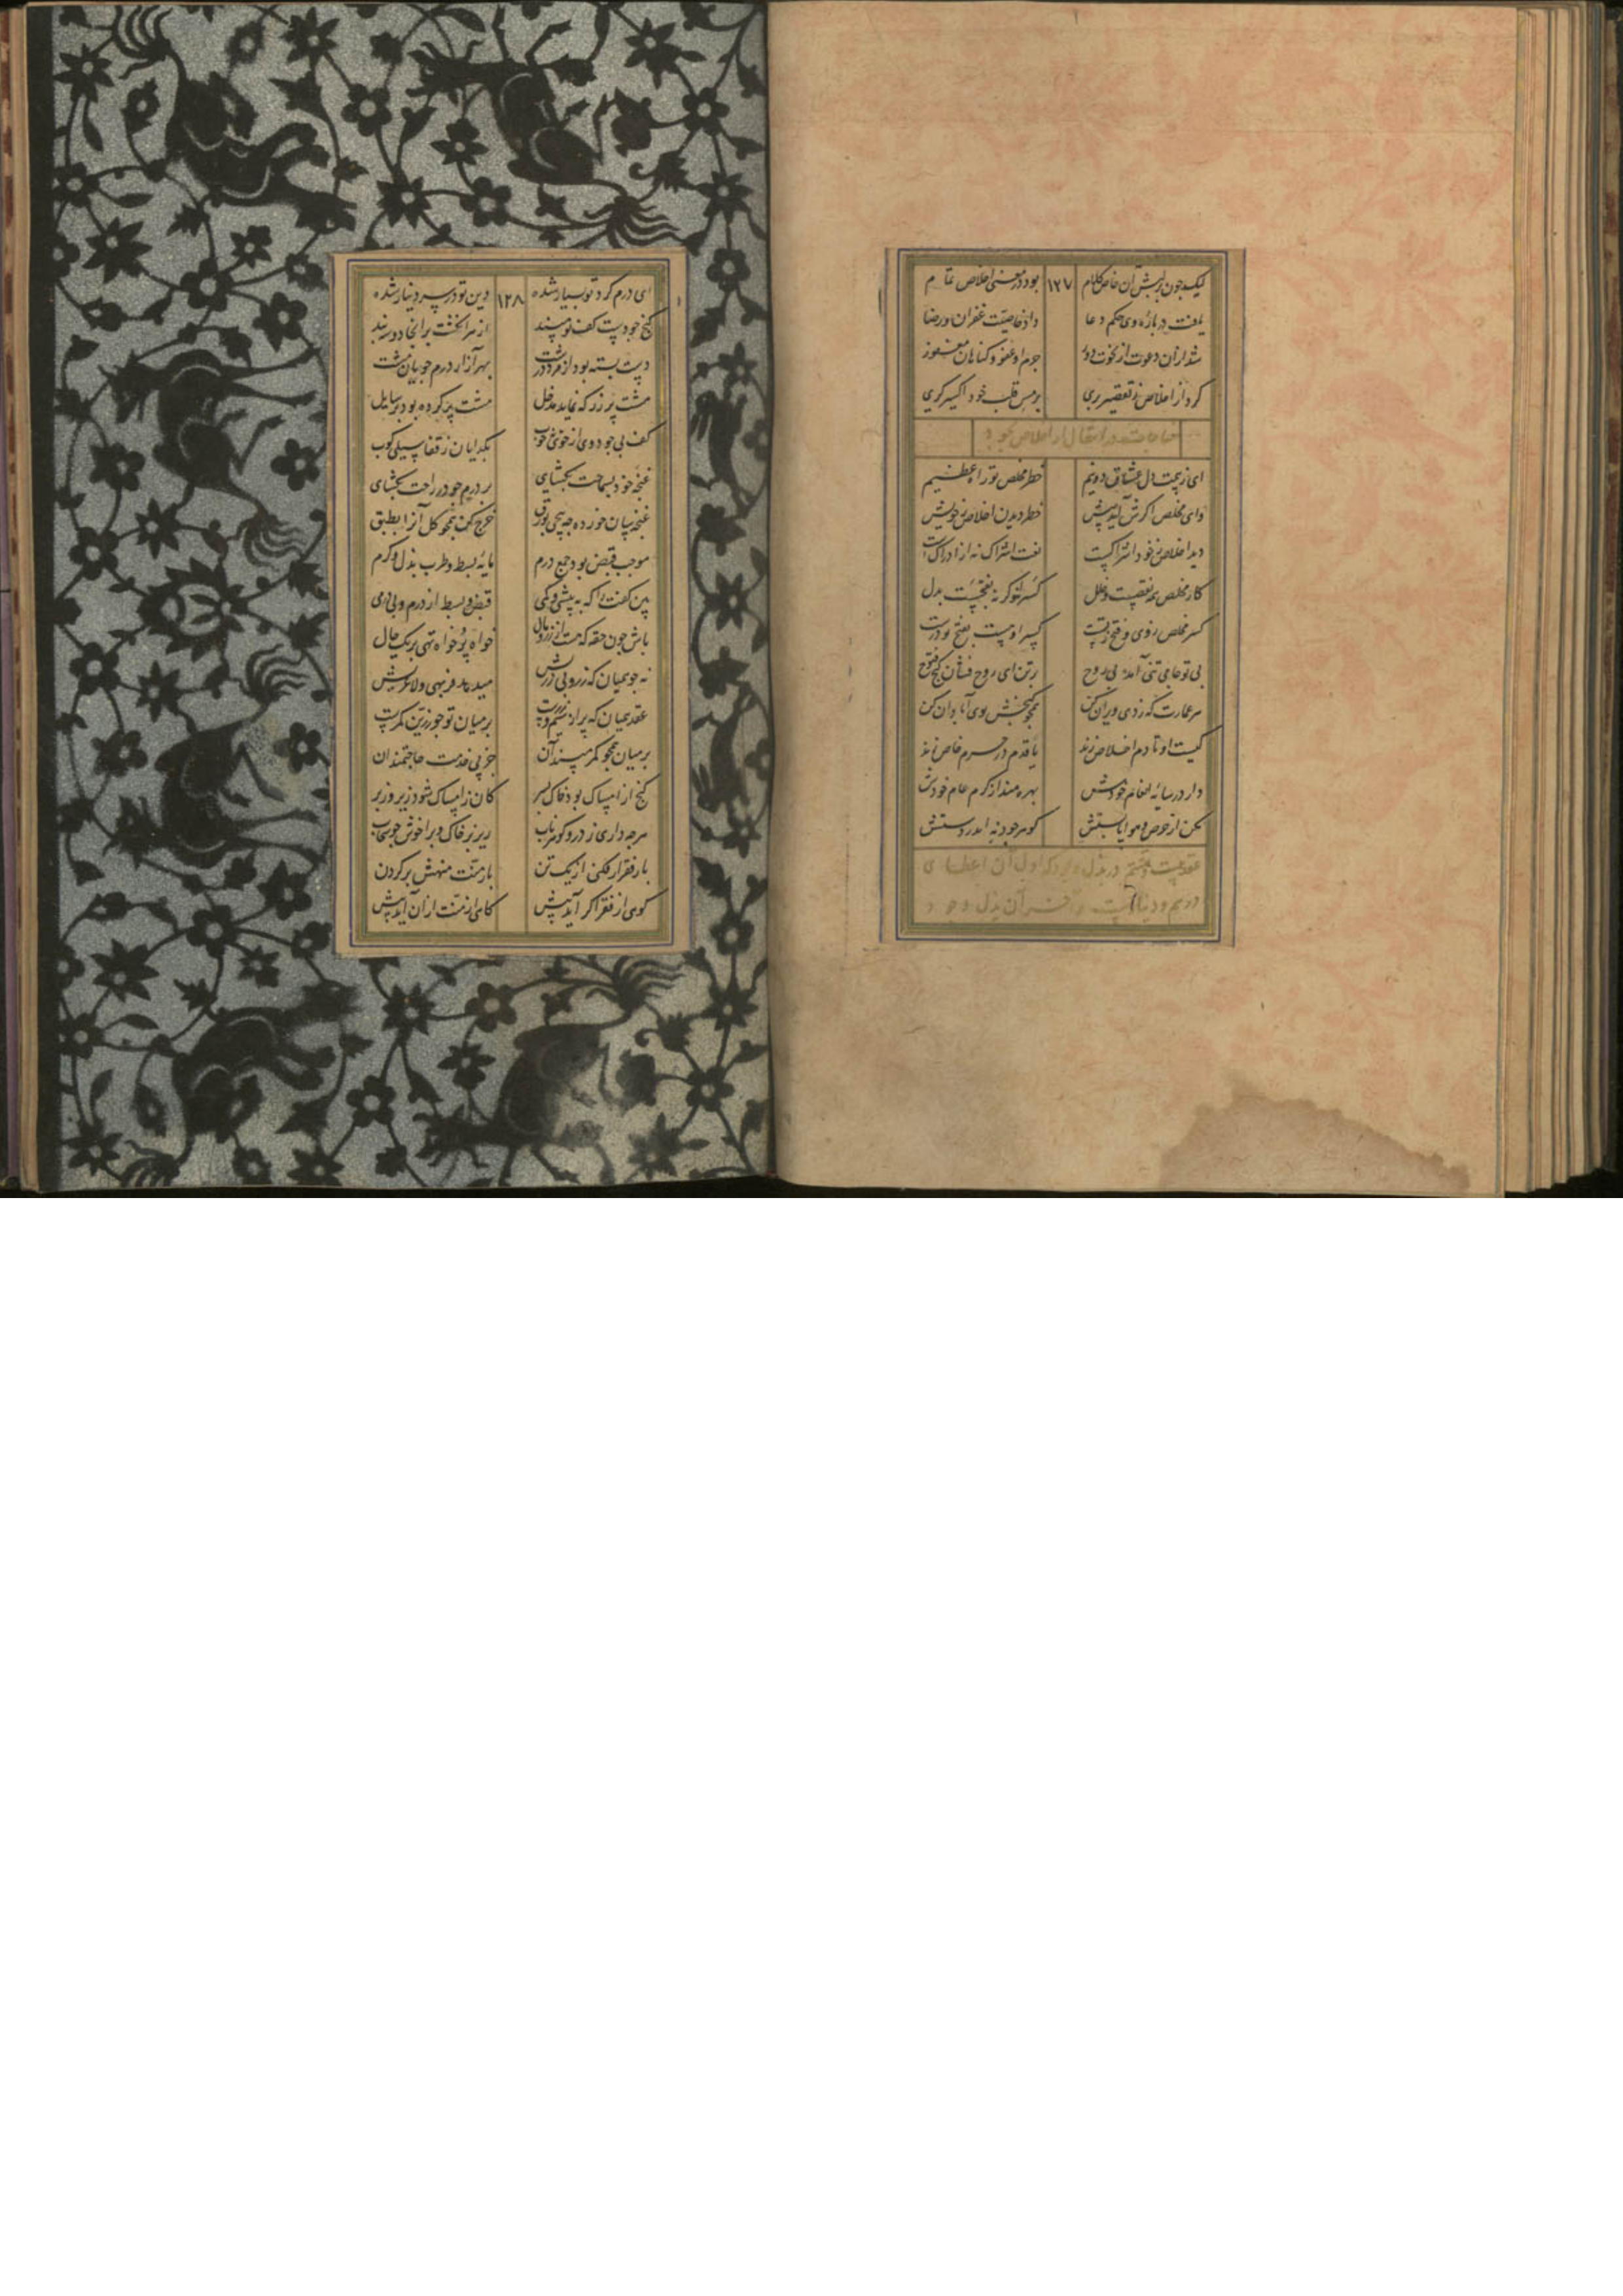 لیک چون بر لبش آن خاص کلام ۱۲۷ بود در معنی اخلاص تمام
یافت درباره وی حکم دعا داد خاصیت غفران و رضا
شد از آن دعوت از نخوت دور جرم او عفو و گناهان مغفور
کرد از اخلاص ز تقصیر بری بر مس قلب خود اکسیرگری
مناجات در انتقال از اخلاص بجود
ای ز بیمت دل عشاق دونیم خطر مخلص تو راه عظیم
وای مخلص اگرش آید پیش خطر دیدن اخلاص ز خویش
دید اخلاص ز خود اشراکست نعت اشراک نه از ادراکست
کار مخلص همه نقصست و خلل کسر لو گر نه بفتحست بدل
کسر مخلص ز وی و فتح ز تست کسر او چیست بفتح تو درست
بی تو جامی تنی آمد بی روح بر تن ای روح فشان گنج فتوح
هر عمارت که زدی ویران کن همچو گنجش بوی آبادان کن
کیست او تا دم اخلاص زند یا قدم در حرم خاص نهد
دار در سایه انعام خودش بهره مند از کرم عام خودش
بکن از حرص و هوا پابستش گوهر جود نه اندر دستش
عقد بیست و هشتم در بذل وجود که اول آن اعطای
درم و دینار است و آخر آن بذل وجود
ای درم گرد تو بسیار شده ۱۲۸ دین تو در سر دینار شده
گنج خود پشت کف تو مپسند از سر انگشت بر آنجا دو سه بند
دست بسته بود از مرد درشت بهر آزار درم جویان مشت
مشت پر زر که نماید مدخل مشت پر کرده بود بر سایل
کف بی جود وی از خوی خوب بگدایان ز قفا سیلی کوب
غنچه خود بسماحت بگشای بر درم جو در راحت بگشای
غنچه سان خرده چه پیچی بورق خرج کن همچو گل آنرا بطبق
موجب قبض بود جمع درم مایه بسط و طرب بذل و کرم
بین کفت را که به بیشی و کمی قبض و بسط از درم و بی درمی
باش چون حقه که هست از زر و مال خواه پر خواه تهی بر یک حال
نه چو همیان که زر و بی زریش میدهد فربهی و لاغریش
عقد همیان که پر از سیم و زرست بر میان تو چو زرین کمرست
بر میان همچو کمر مپسند آن جز پی خدمت حاجتمندان
گنج از امساک بود خاک بسر کان ز امساک شود زیر و زبر
هرچه داری ز در و گوهر ناب ریز بر خاک و بر افشان چو سحاب
بار فقر ار فکنی از یک تن بار منت منهش بر گردن
کوهی از فقر اگر آید پیش کاهی از منت از آن آید بیش